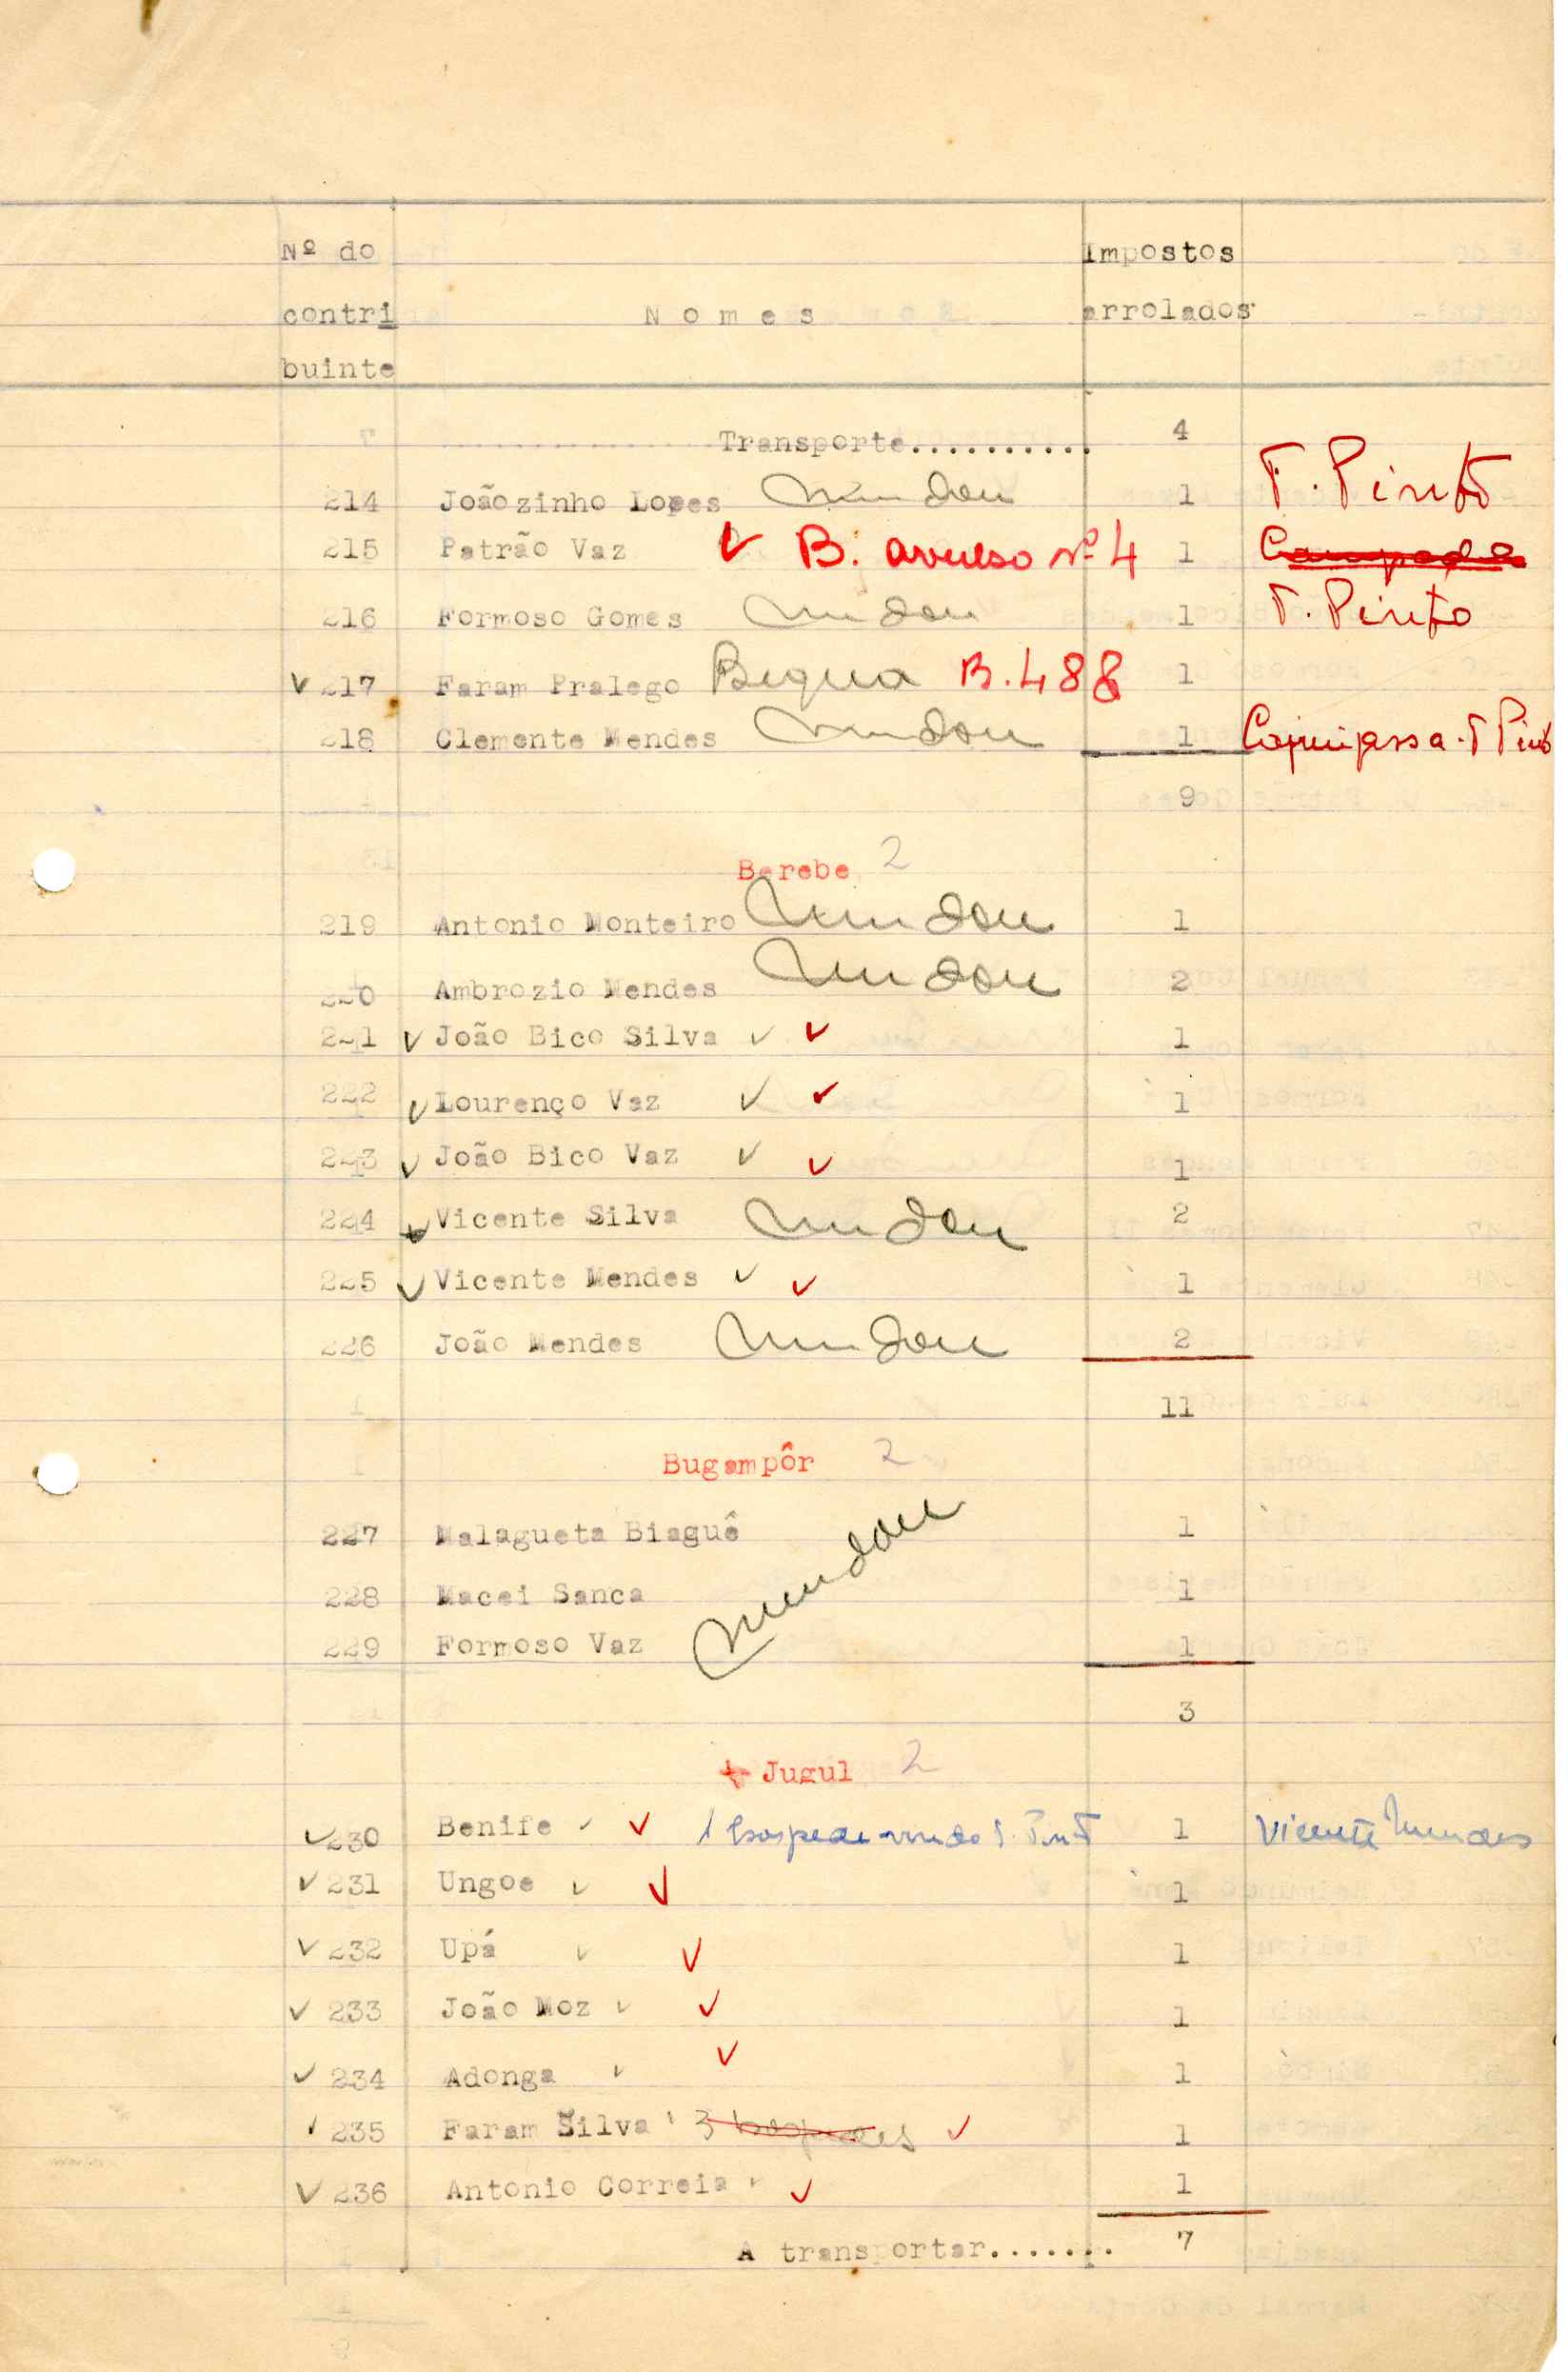 Nº do Impostos
contri N o m e s arrolados
buinte
Transporte.......... 4
214 Joãozinho Lopes mudou 1 T. Pinto
215 Patrão Vaz ✓ B. avulso nº 4 1
216 Formoso Gomes mudou 1 T. Pinto
✓ 217 Faram Pralego Bequa B. 488 1
218 Clemente Mendes mudou 1
9
Berebe 2
219 Antonio Monteiro mudou 1
220 Ambrozio Mendes mudou 2
221 ✓ João Bico Silva ✓ ✓ 1
222 ✓ Lourenço Vaz ✓ ✓ 1
223 ✓ João Bico Vaz ✓ ✓ 1
224 ✓ Vicente Silva mudou 2
225 ✓ Vicente Mendes ✓ ✓ 1
226 João Mendes mudou 2
11
Bugampôr 2
227 Malagueta Biaguê 1
mudou
228 Macei Sanca 1
229 Formoso Vaz 1
3
Jugul 2
✓ 230 Benife ✓ ✓ 1 hospede vindo T. Pinto 1 Vicente Mendes
✓ 231 Ungoe ✓ ✓ 1
✓ 232 Upá ✓ ✓ 1
✓ 233 João Moz ✓ ✓ 1
✓ 234 Adonga ✓ ✓ 1
✓ 235 Faram Silva 3 hospedes ✓ 1
✓ 236 Antonio Correia ✓ ✓ 1
A transportar....... 7